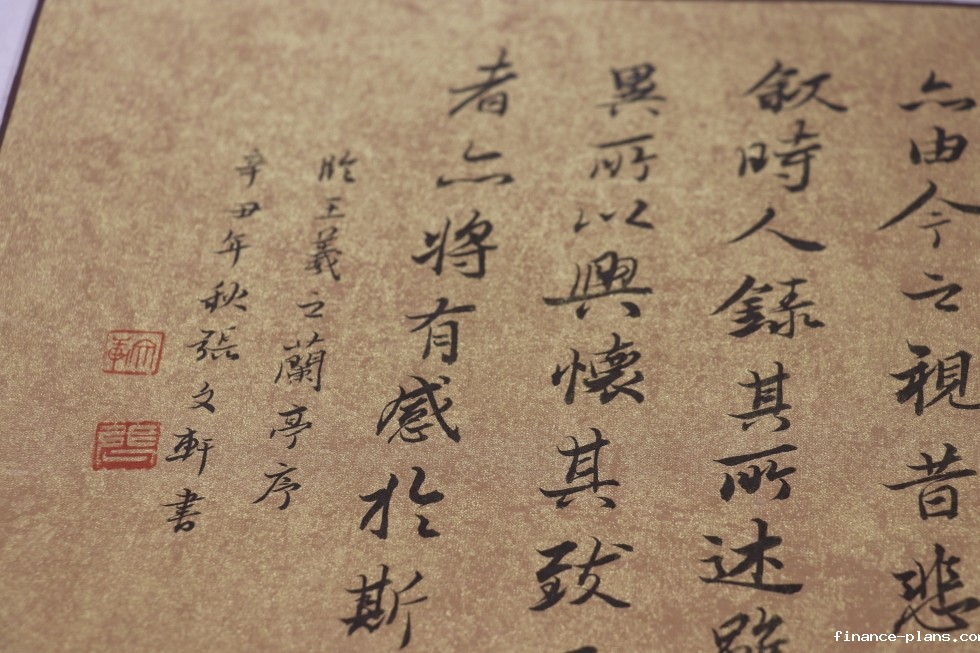 亦由今之視昔悲
敘時人録其所述雖
異所以興懷其致
者亦將有感於斯
臨王羲之蘭亭序
辛丑年秋張文軒書
finance-plans.com